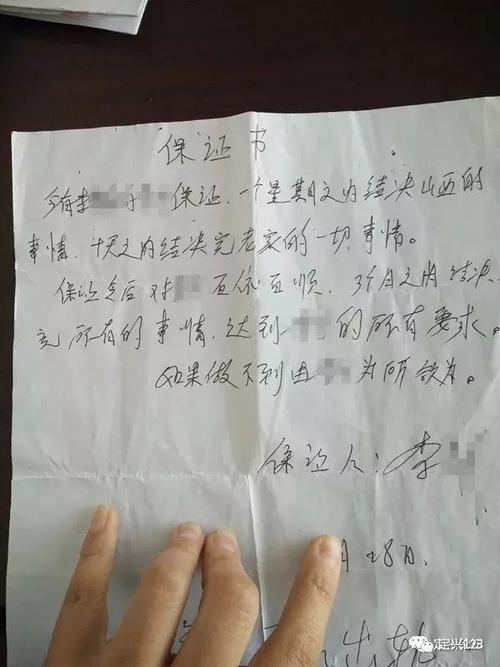 保证书
今有李 保证.一个星期之内结决山西的
事情.十天之内结决完老家的一切事情。
保证名后对 百依百顺.3个月之内结决
完所有的事情.达到 的所有要求。
如果做不到由 为所欲为。
保证人:李
月28日.
定兴123